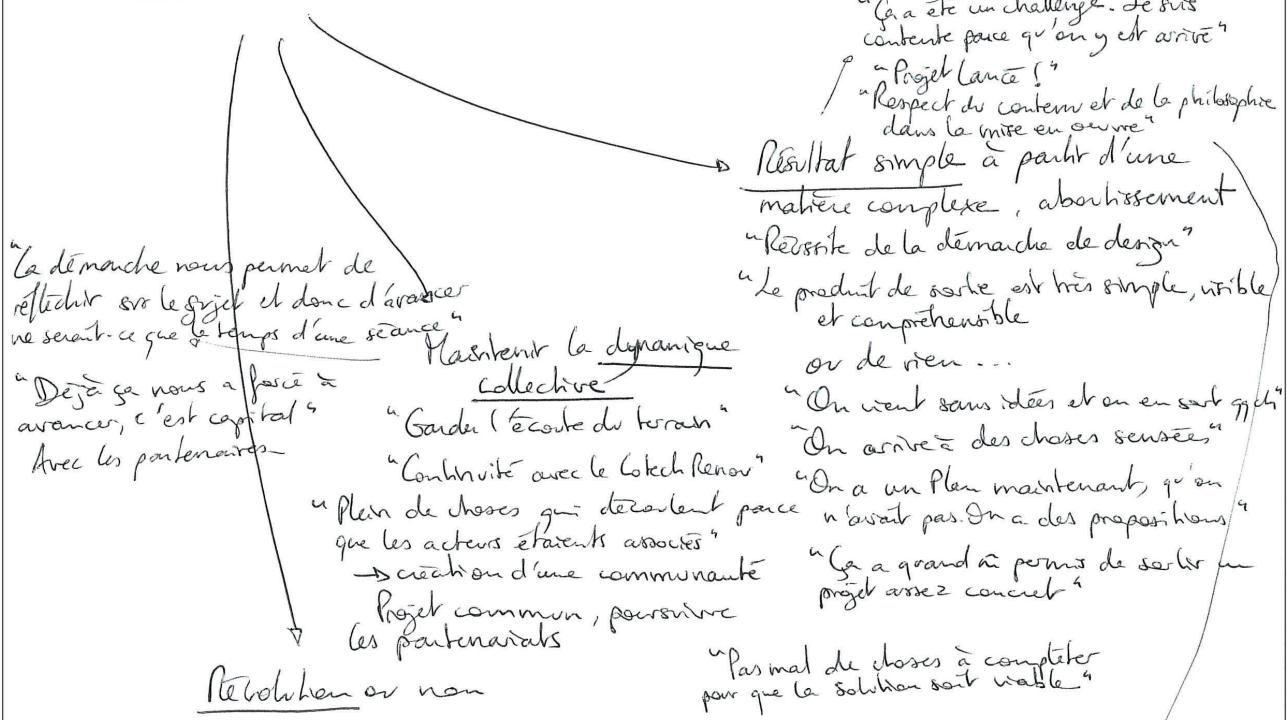 "Ça a été un challenge. Je suis
contente parce qu'on y est arrivé"
"Projet lancé !"
"Respect du contenu et de la philosophie
dans la mise en oeuvre"
Résultat simple à partir d'une
matière complexe, aboutissement
"Réussite de la démarche de design"
"Le produit de sortie est très simple, visible
et compréhensible
ou de rien ...
"On vient sans idées et on en sort qq ch"
"On arrive à des choses sensées"
"On a un Plan maintenant, qu'on
n'avait pas. On a des propositions"
"Ça a quand m̂ permis de sortir un
projet assez concret"
"Pas mal de choses à compléter
pour que la solution soit viable"
"La démarche nous permet de
réfléchir sur le sujet et donc d'avancer
ne serait-ce que le temps d'une séance"
"Déjà ça nous a forcé à
avancer, c'est capital"
Avec les partenaires
Maintenir la dynamique
collective
"Garder l'écoute du terrain"
"Continuité avec le Cotech Renov"
"Plein de choses qui découlent parce
que les acteurs étaients associés"
→ création d'une communauté
Projet commun, poursuivre
les partenariats
Révolution ou non